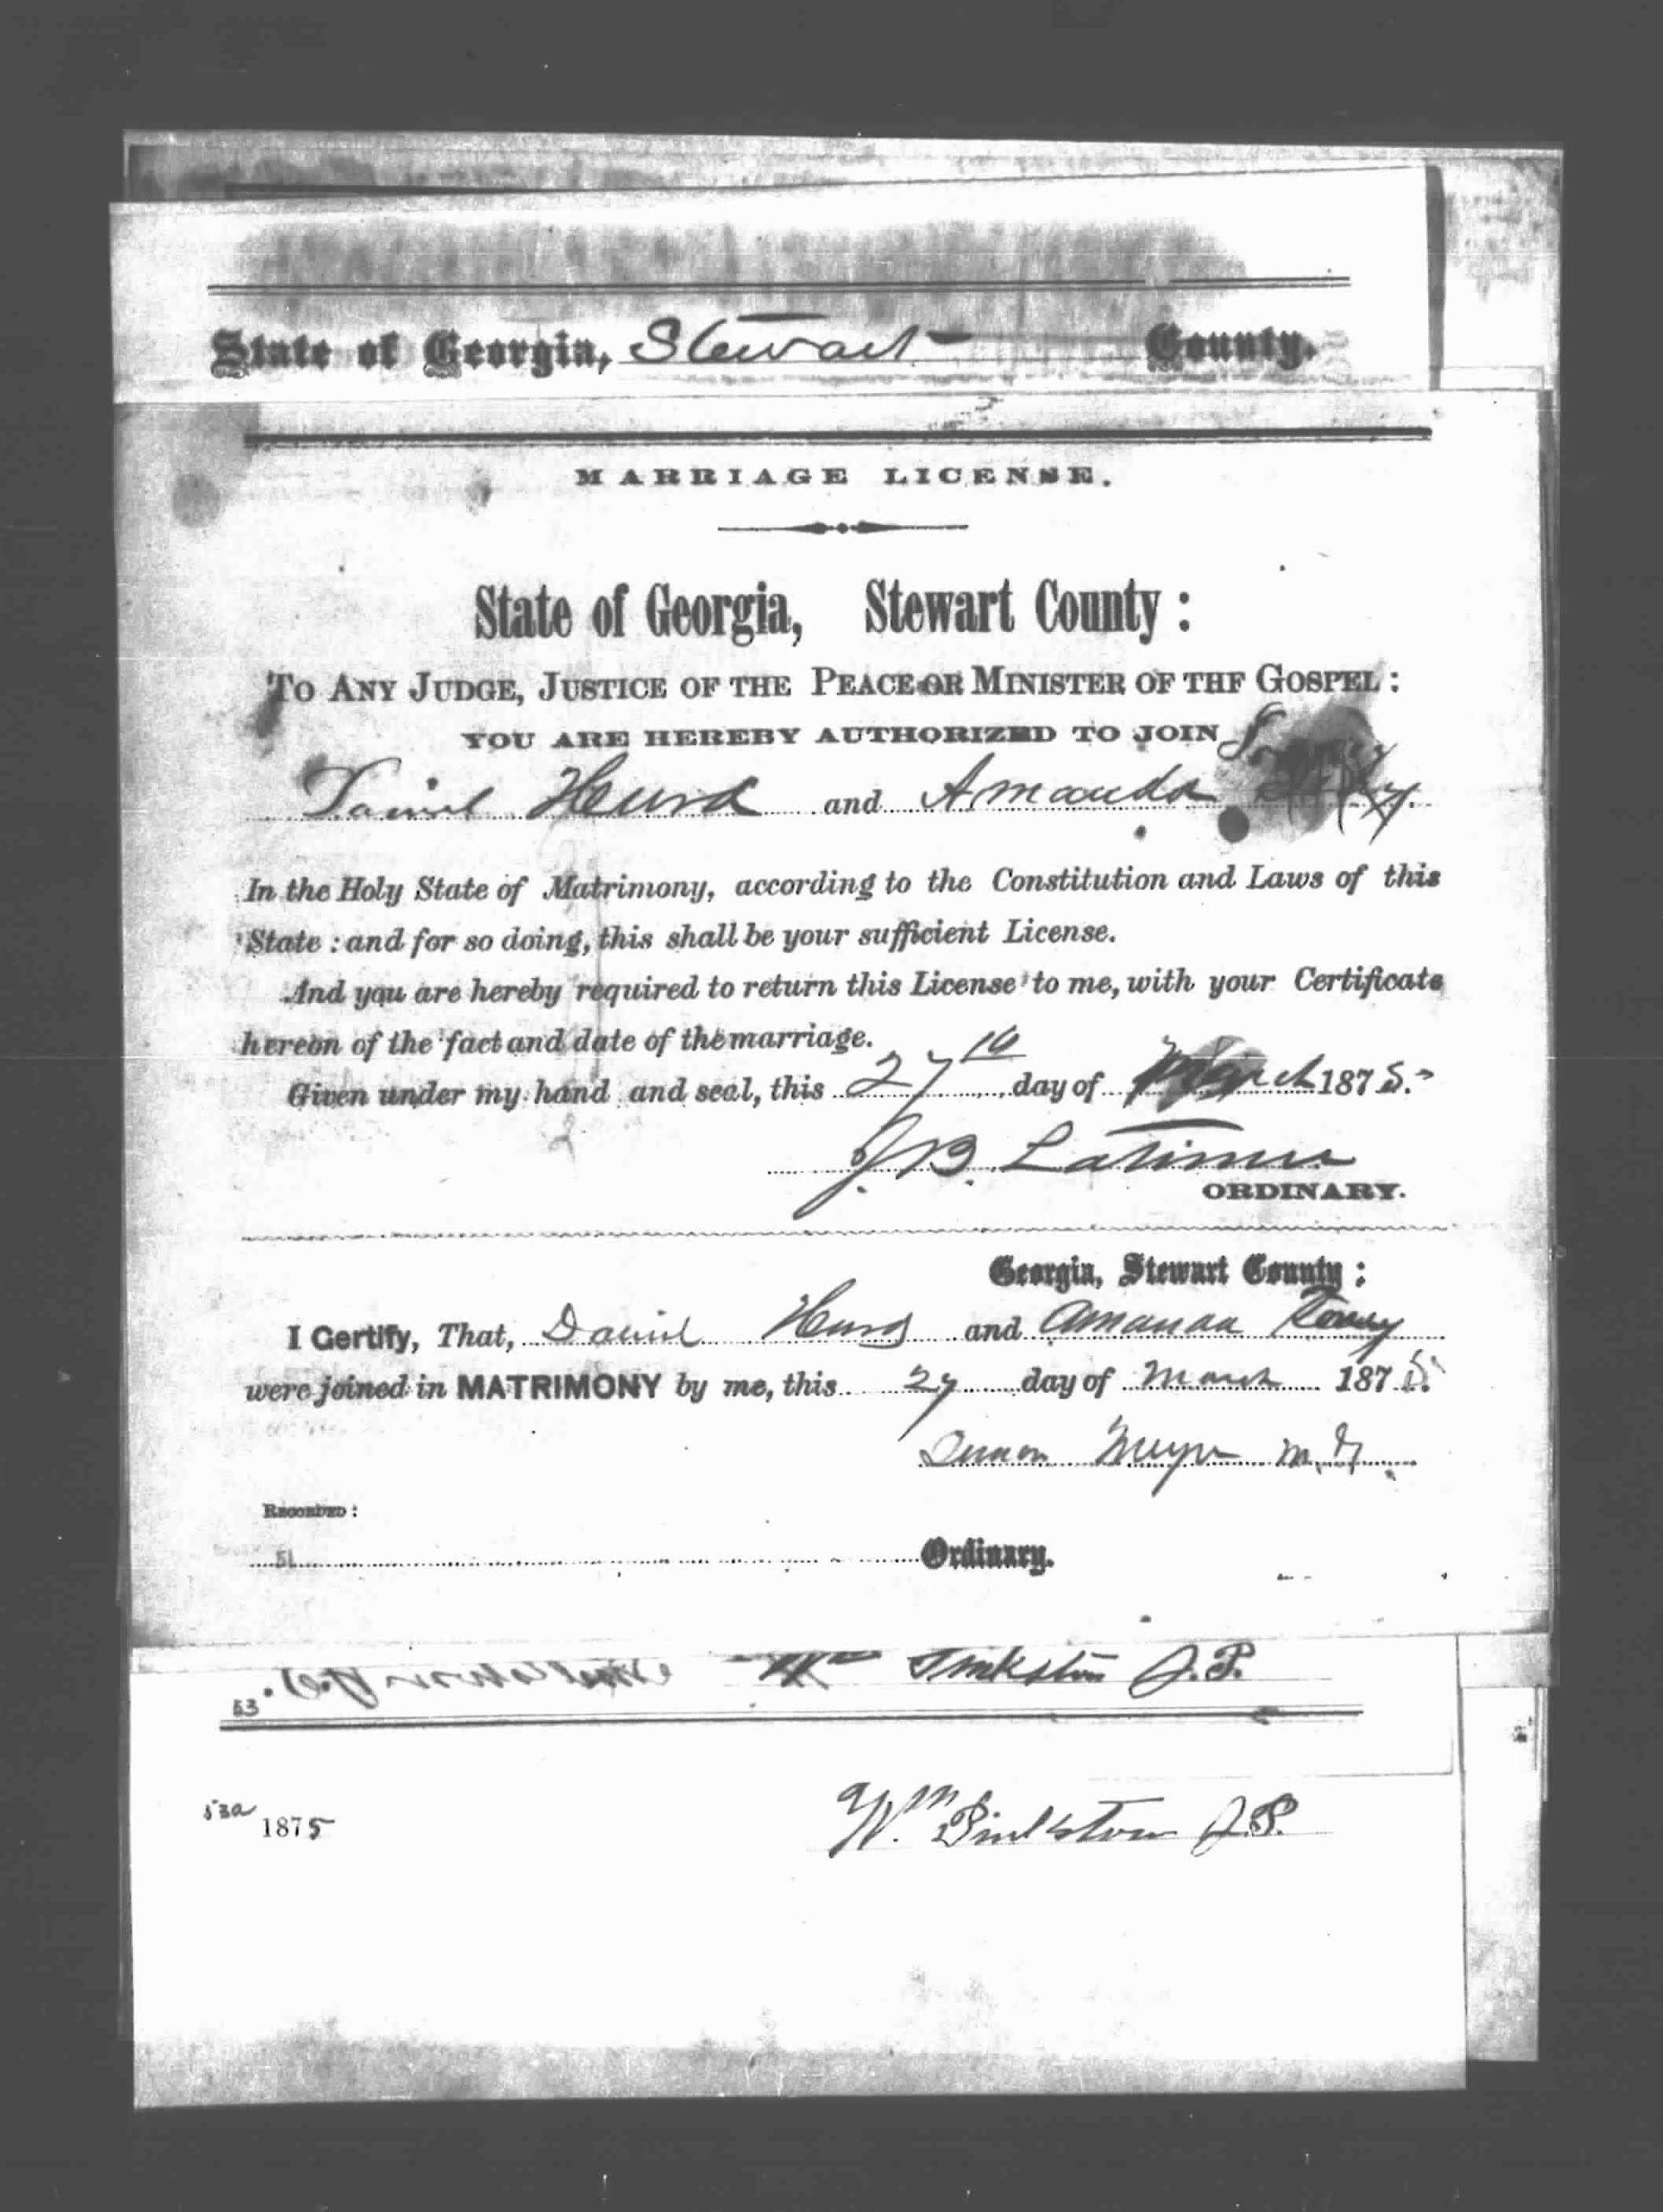 State of Georgia, Stewart County.
MARRIAGE LICENSE.
State of Georgia, Stewart County:
TO ANY JUDGE, JUSTICE OF THE PEACE OR MINISTER OF THE GOSPEL:
YOU ARE HEREBY AUTHORIZED TO JOIN
Daniel Hurd and Amanda
In the Holy State of Matrimony, according to the Constitution and Laws of this
State: and for so doing, this shall be your sufficient License.
And you are hereby required to return this License to me, with your Certificate
hereon of the fact and date of the marriage.
Given under my hand and seal, this 27th day of March 1875.
J. B. Latimer
ORDINARY.
Georgia, Stewart County:
I Certify, That, Daniel Hurd and Amanda
were joined in MATRIMONY by me, this 27 day of March 1875.
M. G.
RECORDED:
51 Ordinary.
Wm Pinkston J.P.
53
53a 1875
Wm Pinkston J.P.